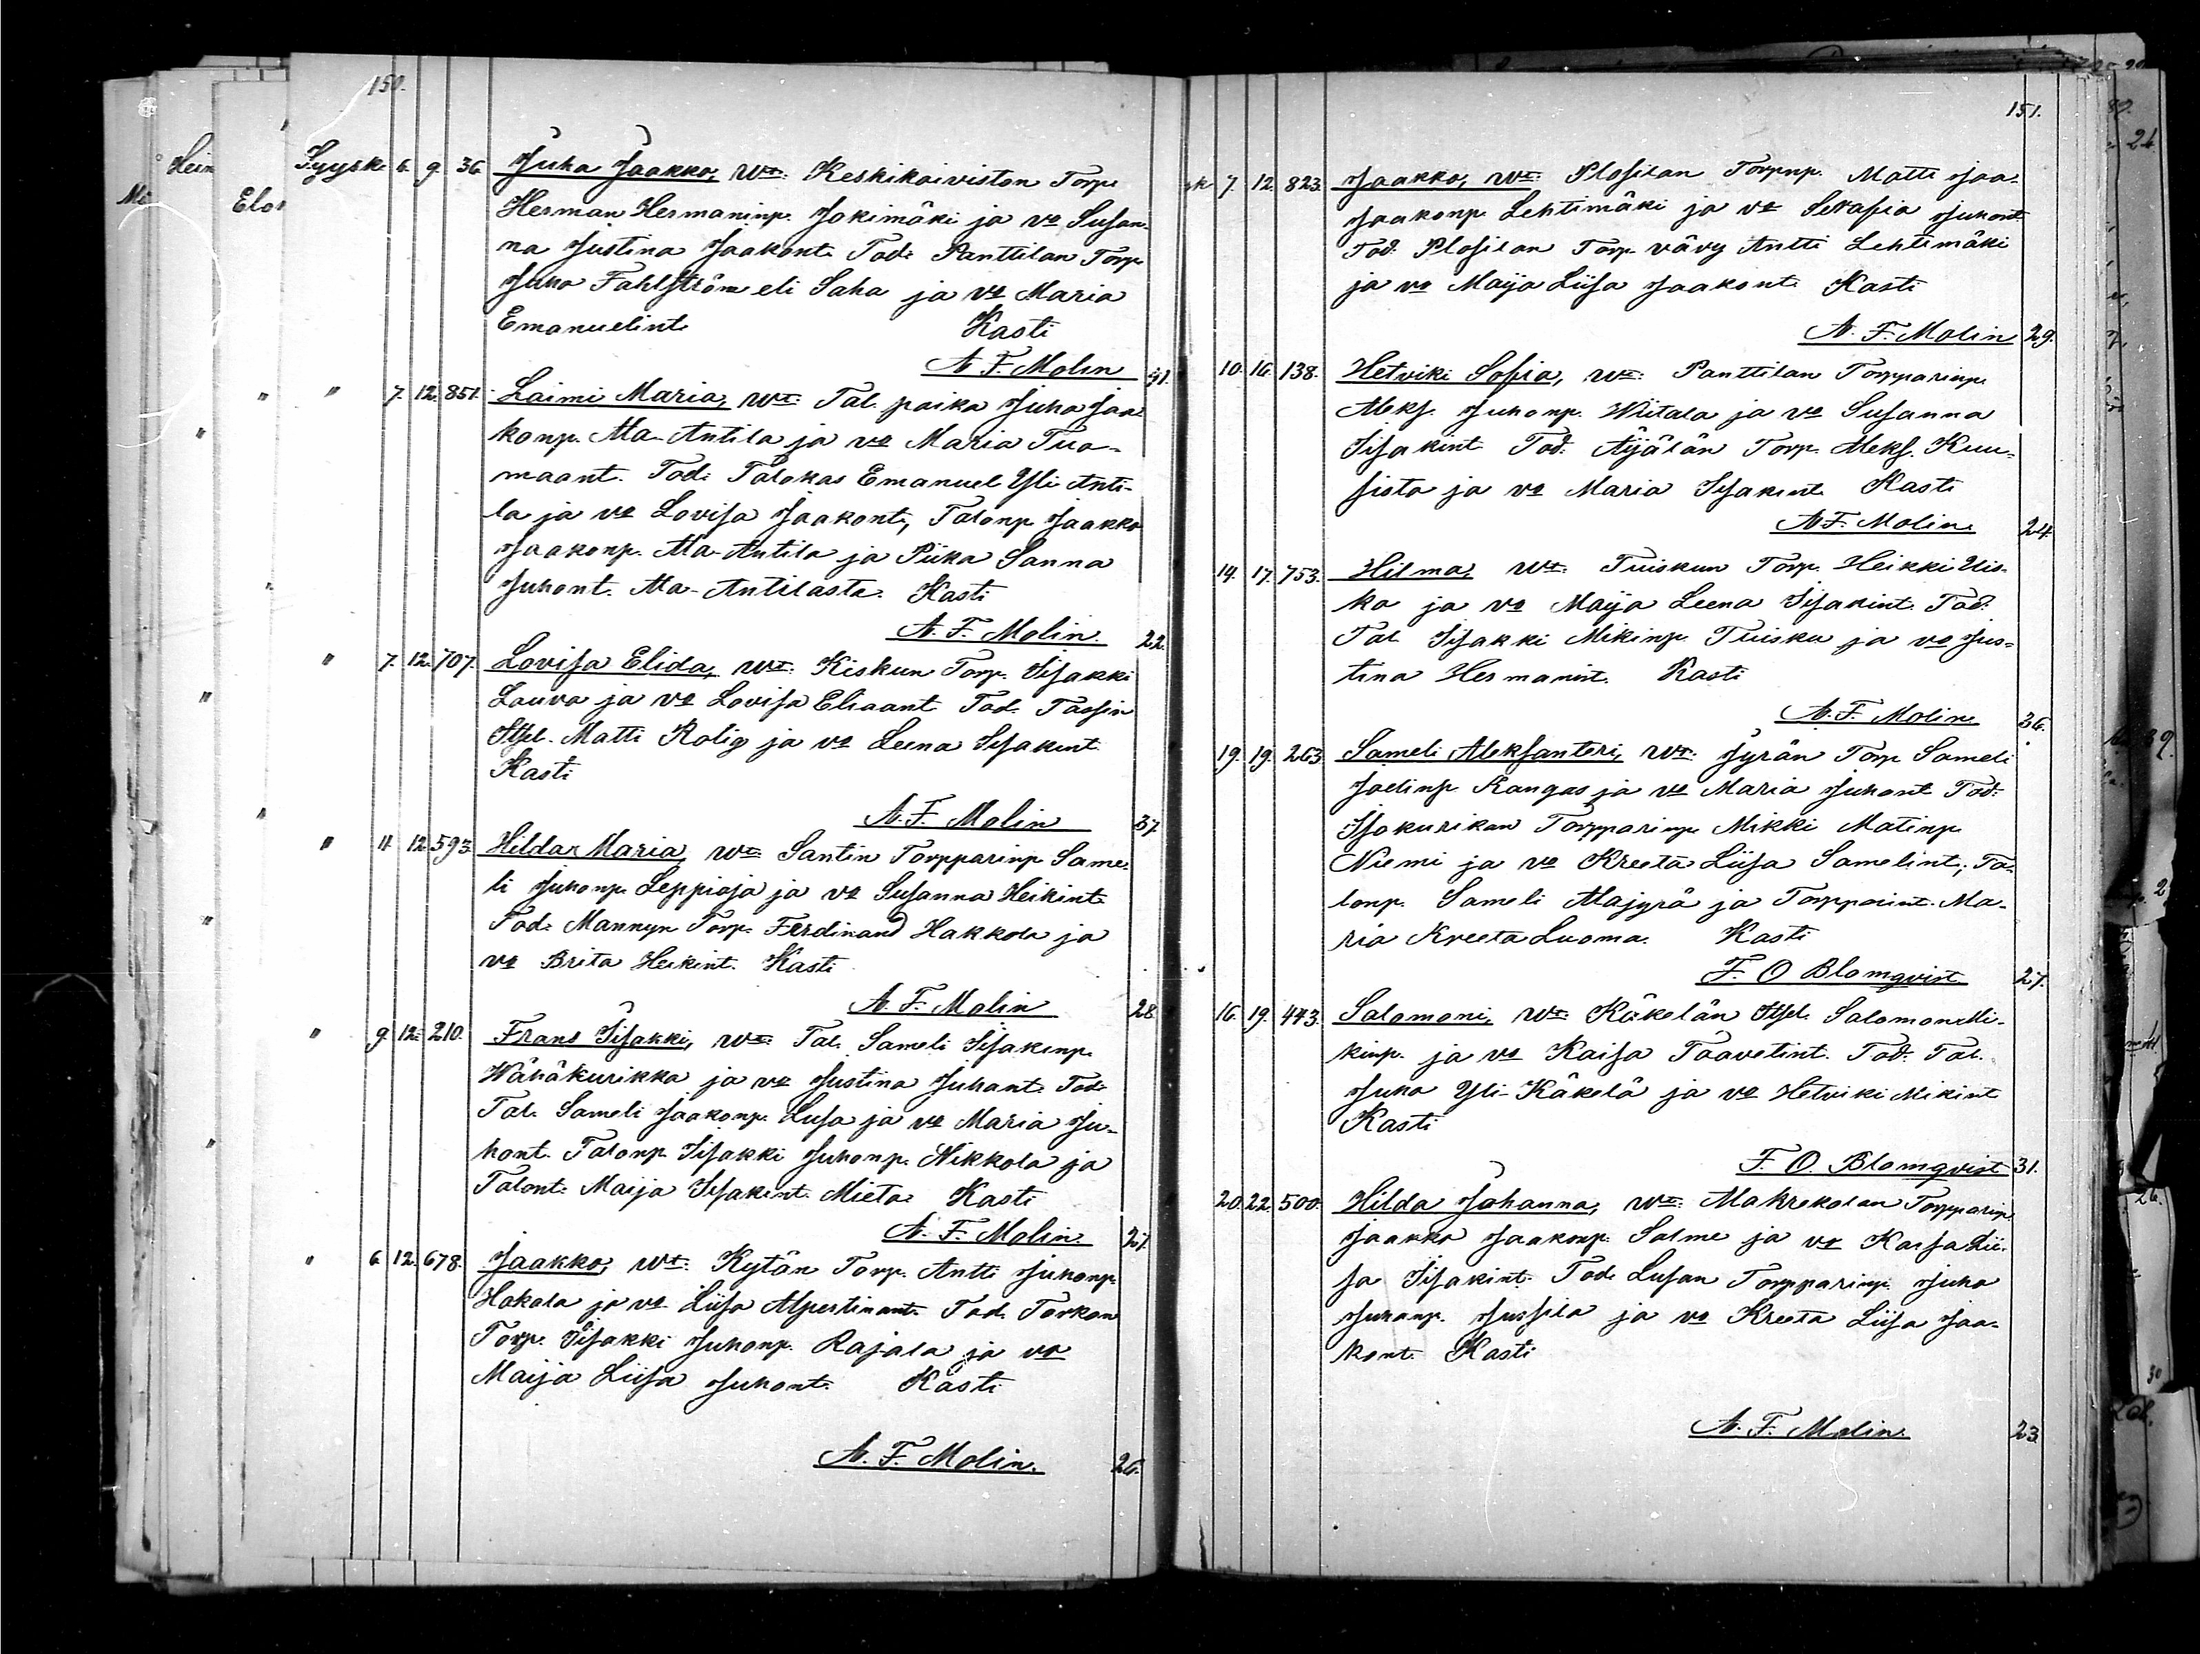 150.
Syysk. 6. 9. 36. Juha Jaakko, Wt: Keskikoiviston Torp.
Herman Hermaninp. Jokimäki ja vo Susan-
na Justina Jaakont. Tod: Panttilan Torp.
Juho Fahlström eli Saha ja vo Maria
Emanuelint. Kasti
A. F. Molin
" 7. 12. 851. Laimi Maria, Wt: Tal. poika Juha Jaa-
konp. Ala-Antila ja vo Maria Tuo-
maant. Tod: Talokas Emanuel Yli Anti-
la ja vo Lovisa Jaakont, Talonp. Jaakko
Jaakonp. Ala-Antila ja Piika Sanna
Juhont. Ala-Antilasta. Kasti
A. F. Molin 22.
" 7. 12. 707. Lovisa Elida, Wt: Kiskun Torp. Iisakki
Louvo ja vo Lovisa Eliaant Tod. Tassin
Itsel. Matti Rolig ja vo Leena Iisakint.
Kasti
A. F. Molin 37.
" 11. 12. 593. Hilda Maria, Wt: Santin Torpparinp. Same-
li Juhonp. Leppioja ja vo Susanna Heikint.
Tod: Mannyn Torp. Ferdinand Hakkola ja
vo Brita Heikint. Kasti
A. F. Molin 28
" 9. 12. 210. Frans Iisakki, Wt: Tal. Sameli Iisakinp.
Wähäkurikka ja vo Justina Juhant. Tod:
Tal. Sameli Jaakonp. Lusa ja vo Maria Ju-
hont. Talonp. Iisakki Juhonp. Nikkola ja
Talont. Maija Iisakint. Mieto. Kasti
A. F. Molin. 27.
" 6. 12. 678. Jaakko, Wt: Kytön Torp. Antti Juhonp.
Hakala ja vo Liisa Alpertinant. Tod. Torkon
Torp. Iisakki Juhonp. Rajala ja vo
Maija Liisa Juhont. Kasti
A. F. Molin. 26.
151.
7. 12. 823. Jaakko, Wt: Plosilan Torpnp. Matti Jaa-
Jaakonp. Lehtimäki ja vo Serafia Juhont.
Tod. Plosilan Torp. vävy Antti Lehtimäki
ja vo Maija Liisa Jaakont. Kasti
A. F. Molin 29.
10. 16. 138. Hetviki Sofia, Wt: Panttilan Torpparinp.
Aleks. Juhonp. Wiitala ja vo Susanna
Iisakint. Tod. Äijälän Torp. Aleks. Kuu-
sisto ja vo Maria Iisakint. Kasti
A. F. Molin. 24.
14. 17. 753. Hilma, Wt: Tuiskun Torp. Heikki Uis-
ko ja vo Maija Leena Iisakint. Tod:
Tal. Iisakki Mikinp. Tuisku ja vo Jus-
tina Hermanint. Kasti
A. F. Molin 36.
19. 19. 263. Sameli Aleksanteri, Wt: Jyrän Torp. Sameli
Joelinp. Kangas ja vo Maria Juhont. Tod:
Isokurikan Torpparinp. Mikki Matinp.
Niemi ja vo Kreeta Liisa Samelint; Ta-
lonp. Sameli Alajyrä ja Torpparint. Ma-
ria Kreeta Luoma. Kasti
F. O Blomqvist 27.
16. 19. 443. Salomoni, Wt: Käkelän Itsel. Salomon Mi-
kinp. ja vo Kaisa Taavetint. Tod: Tal.
Juho Yli-Käkelä ja vo Hetviki Mikint
Kasti
F. O. Blomqvist 31.
20. 22. 500. Hilda Johanna, Wt: Makrekolan Torpparinp.
Jaakko Jaakonp. Salme ja vo Kaisa Lii-
sa Iisakint. Tod: Lusan Torpparinp. Juho
Juhonp. Jussila ja vo Kreeta Liisa Jaa-
kont. Kasti
A. F. Molin. 23.